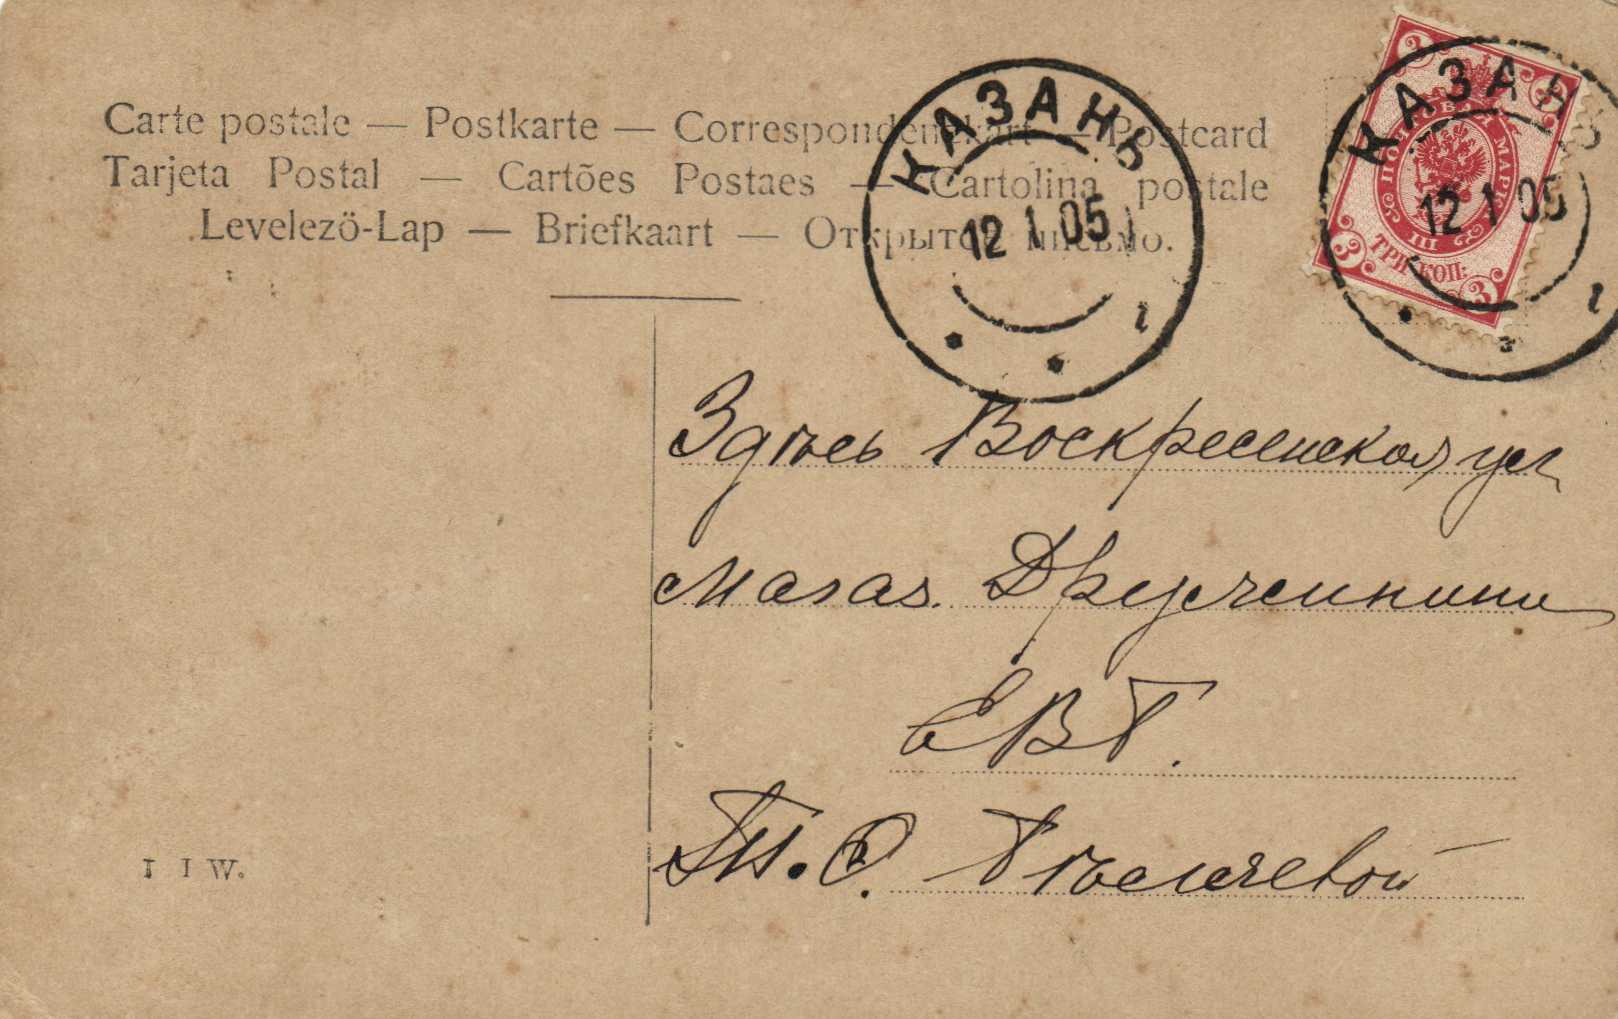 Carte postale — Postkarte — Correspondenzkart — Postcard
Tarjeta Postal — Cartões Postaes — Cartolina postale
Levelezö-Lap — Briefkaart — Открытое письмо.
КАЗАНЬ
12 1 05
1
КАЗАНЬ
12 1 05
1
ПОЧТОВАЯ МАРКА
ТРИ КОП:
3 3 3
Здѣсь Воскресенская ул
Магаз.
ЕВГ.
I I W.